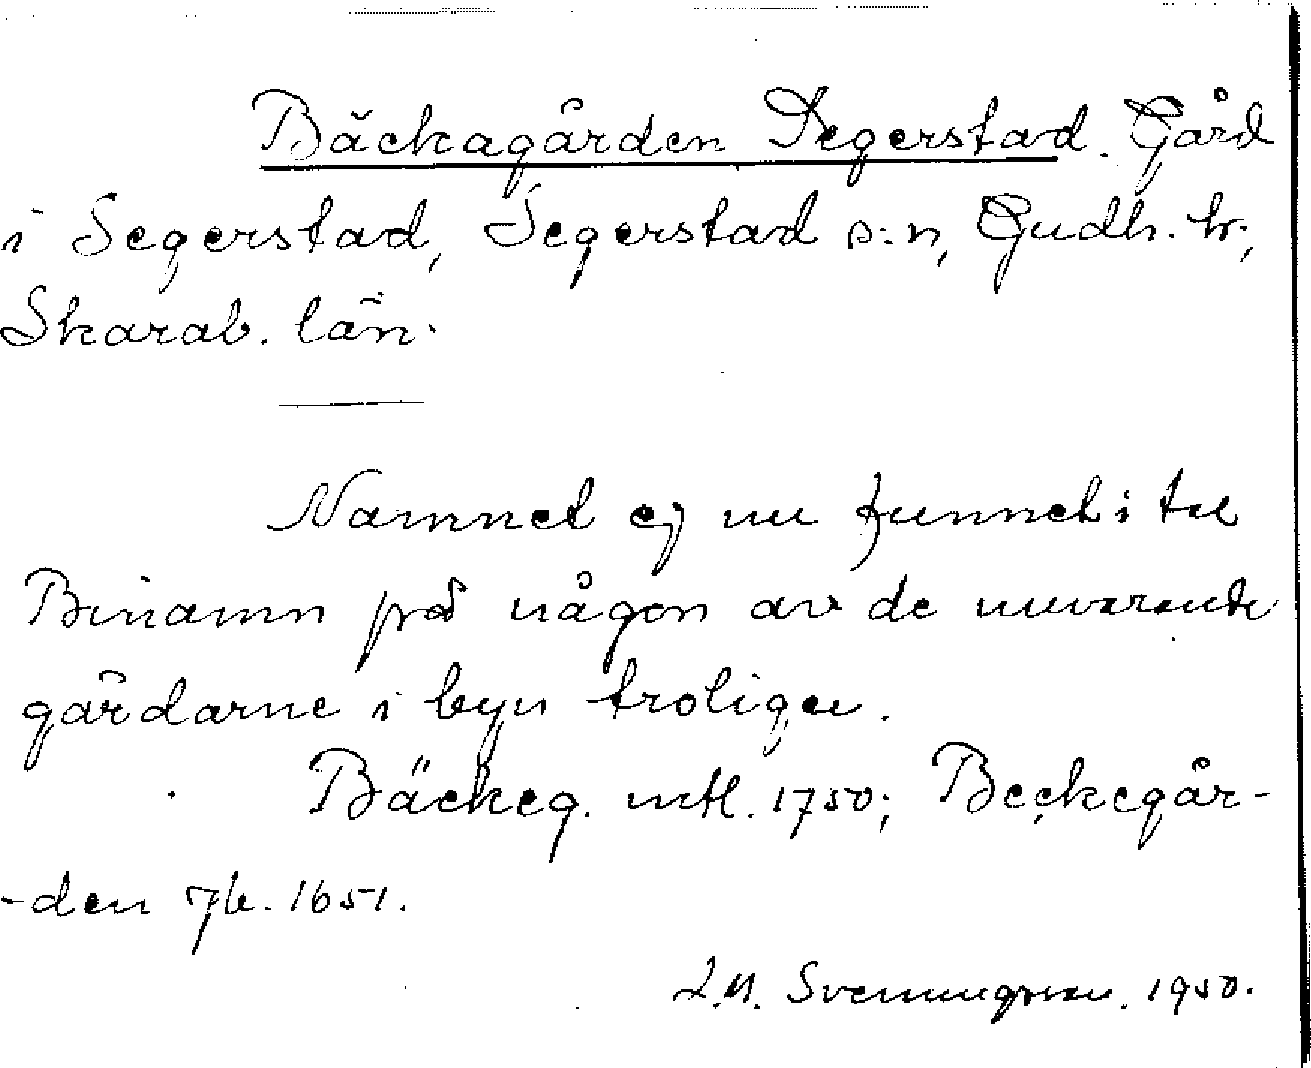 Bäckagården Segerstad. Gård
i Segerstad, Segerstad s:n, Gudh. hr,
Skarab. län.
Namnet ej nu funnet i tel
Binamn på någon av de nuvarande
gårdarne i byn troligen.
Bäckeg. mtl. 1750; Beckegår-
-den Jb. 1651.
Svenungsson. 1950.